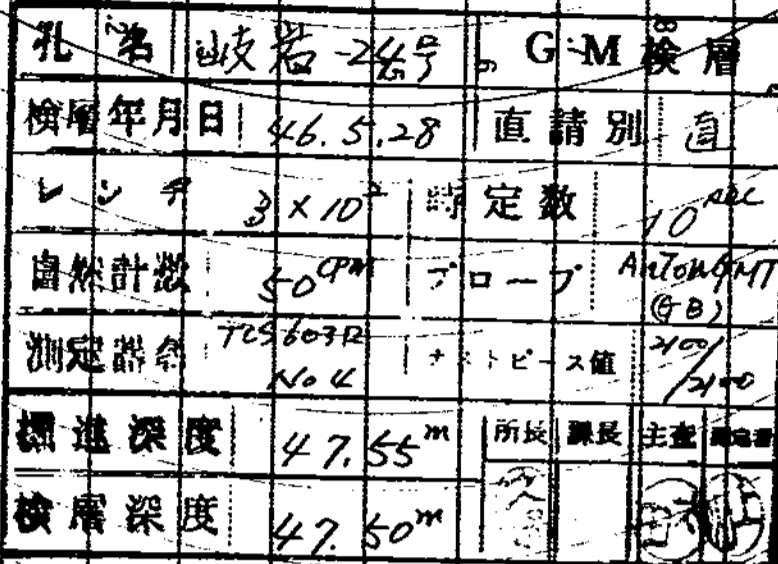 孔名 岐岩-24号 G・M検層
検層年月日 46.5.28 直請別 直
レンヂ 3×10² 時定数 10 sec
自然計数 50 cpm プローブ Anton GMT (GB)
測定器名 TCS 603R No 4 テストピース値 2100/2100
掘進深度 47.55m 所長 課長 主査 測定者
検層深度 47.50m